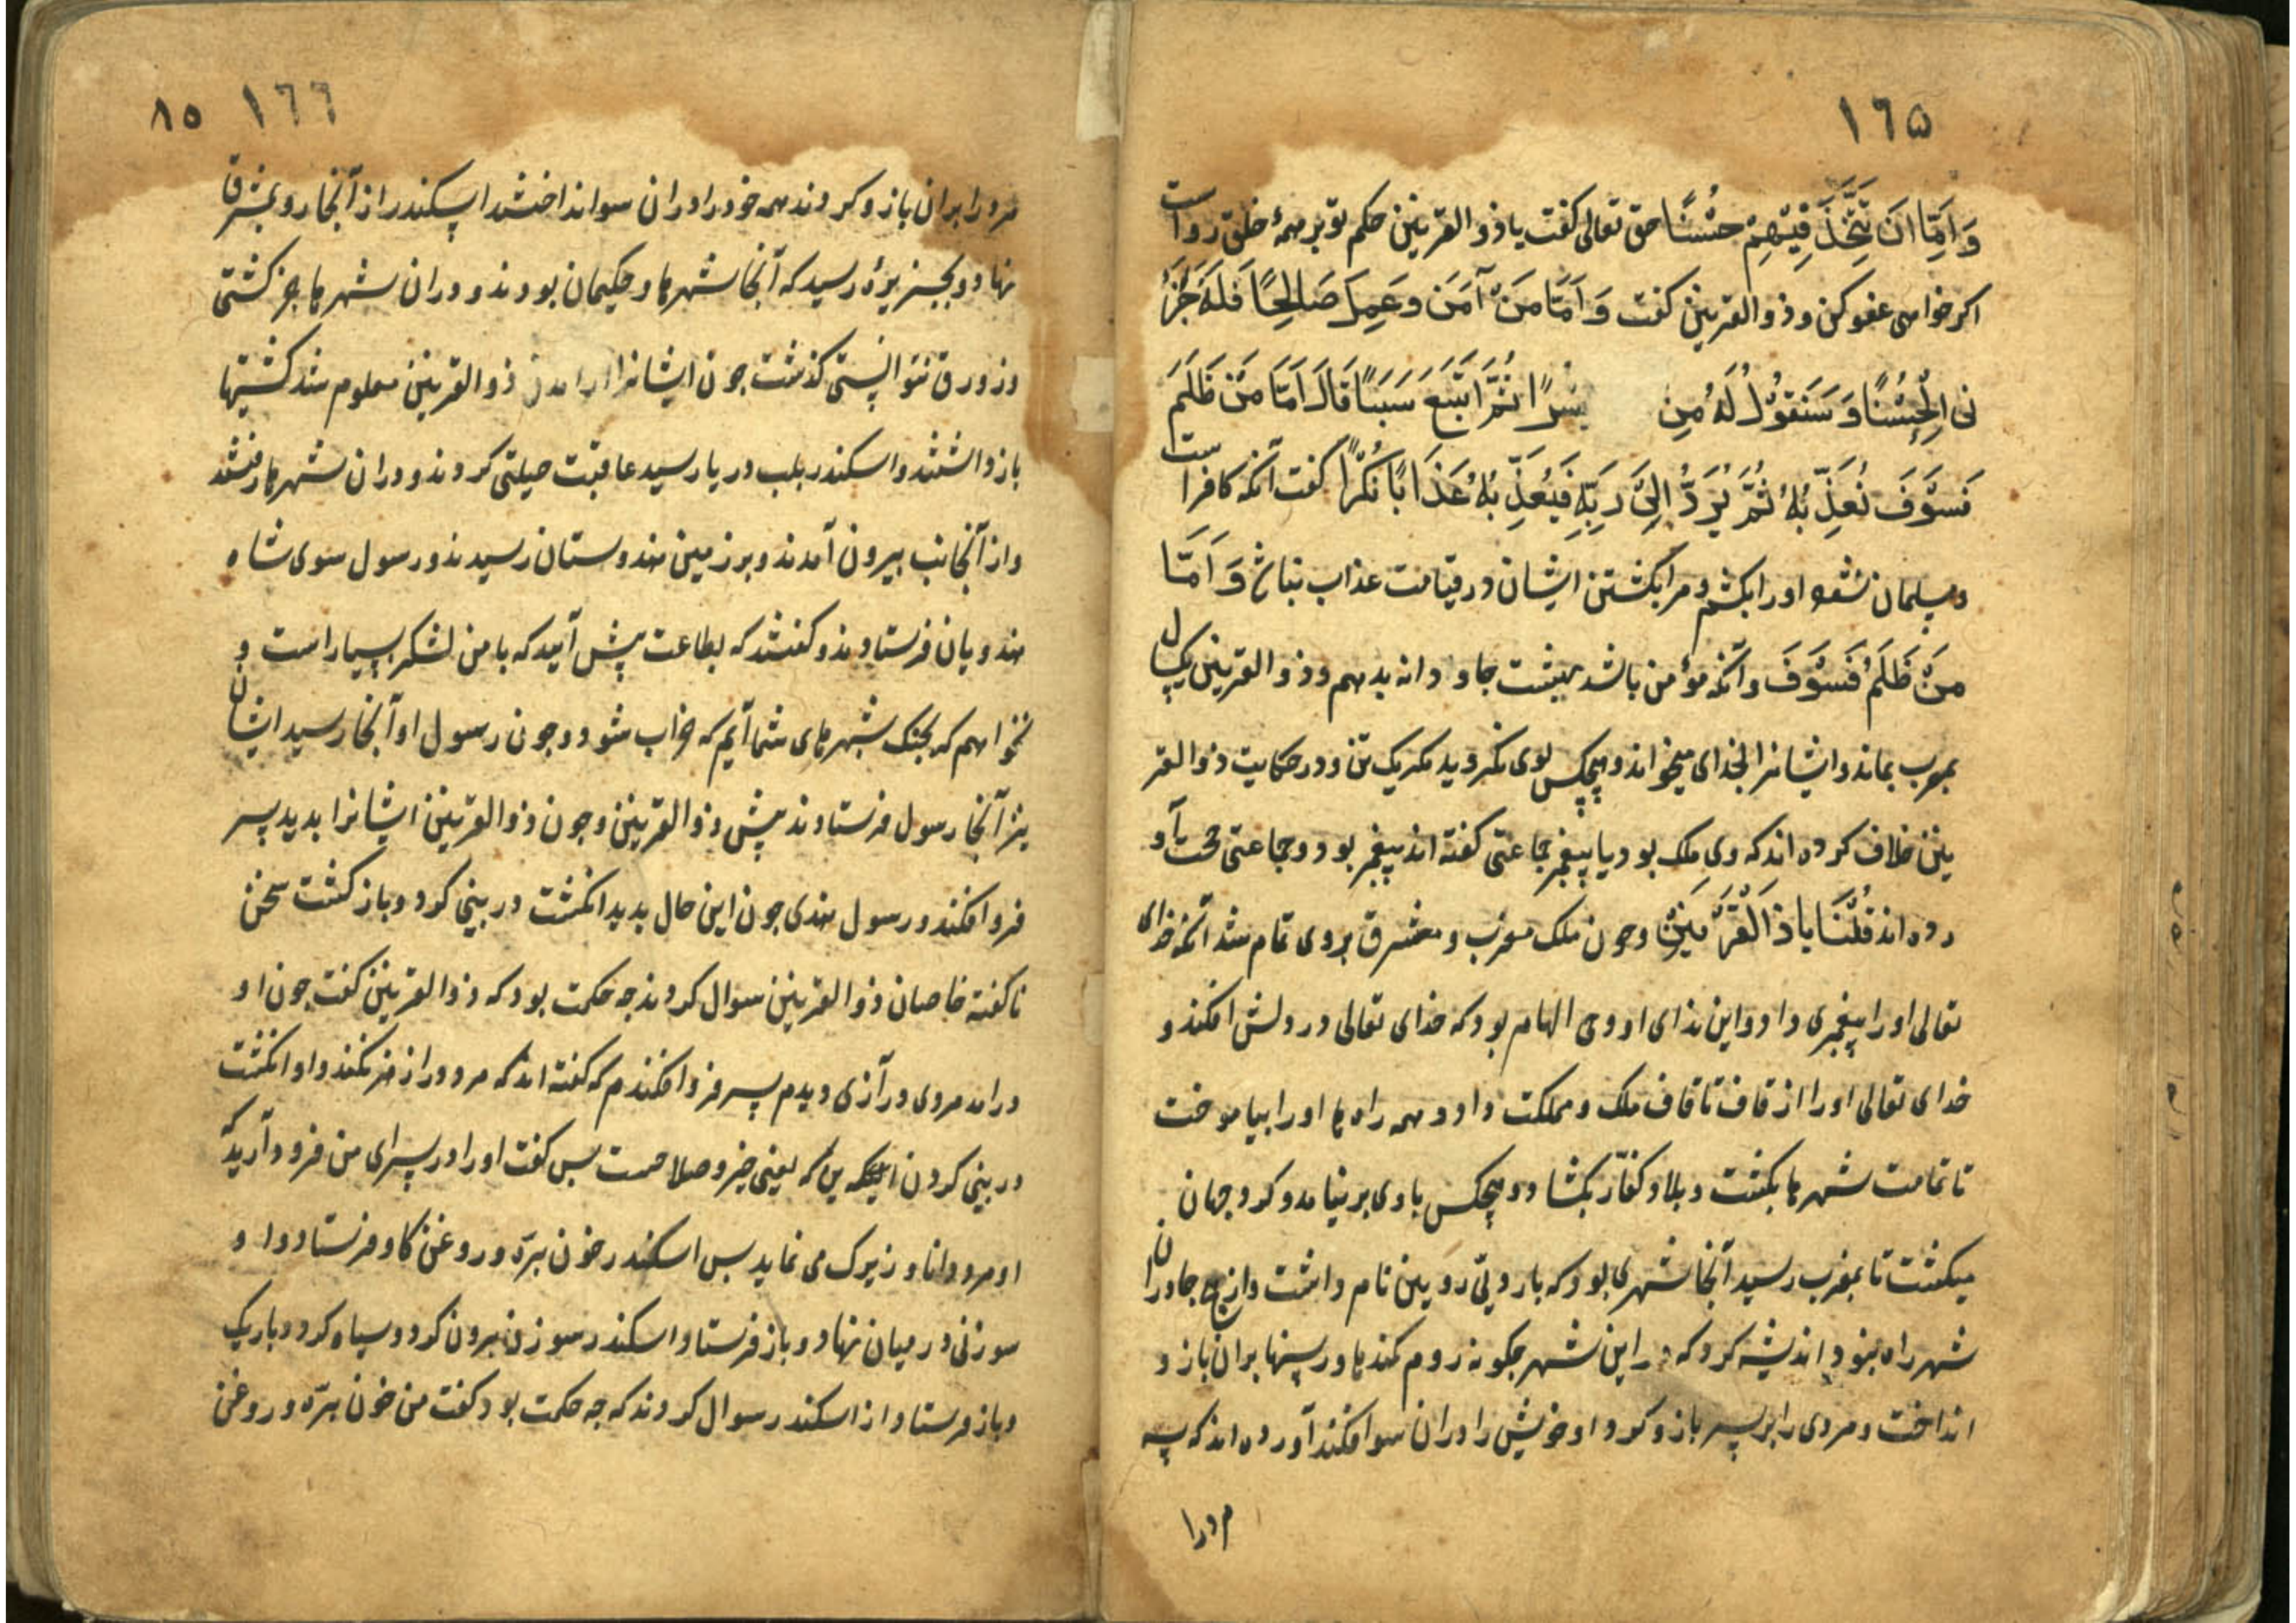 ١٦٥
وَاَمِّا اَنَ تَتَّخِذَ فِيْهِمْ حُسْنًا حق تعالى کفت یا ذو القرنین حکم تو بر همهٔ خلق رواست
اکر خواهی عفو کن و ذو القرنین کفت وَاَمَّا مَنْ آمَنَ وَعَمِلَ صَالِحًا فَلَهُ جَزَ
نى الْحُسْنًا وَسَنَقُوْلُ لَهُ مِن يُسْرًا ثُمَّ اَتَّبَعَ سَبَبًا قَالَ اَمَّا مَنْ ظَلَمَ
فَسَوْفَ نُعَذِّبُهُ ثُمَّ يُرَدُّ اِلَىٰ رَبِّهِ فَيُعَذِّبُهُ عَذَابًا نُكْرًا کفت آنکه کافر است
ومسلمان نشود اورا بکشم و مرا بکشتن ایشان در قیامت عذاب نباش وَاَمَّا
مَنْ ظَلَمَ فَسَوْفَ وآنکه مؤمن باشد بهشت جاودانه بدهم وذو القرنین یکسال
بمغرب بماند وایشانرا بخدای میخواند وهیچکس بوی نکروید مکر یک تن ودر حکایت ذو القر
نین خلاف کرده اند که وی ملک بود یا پیغمبر جماعتی کفته اند پیغمبر بود وجماعتی حجت آو
رده اند قُلْنَا يَا ذَ الْقَرْنَيْنِ وجون ملک مغرب ومشرق بروی تمام شد آنکه خدای
تعالی اورا پیغمبری داد واین ندای او وحی الهام بود که خدای تعالی در دلش افکند و
خدای تعالی اورا از قاف تا قاف ملک ومملکت داد وهمه راه ها اورا بیاموخت
تا تمامت شهرها بکشت وبلاد کفّار بکشاد وهیچکس باوی برنیامد وکرد جهان
میکشت تا بمغرب رسید آنجا شهری بود که باروئی رویین نام داشت واز هیج جا دران
شهر راه نبود اندیشه کرد که در این شهر جکونه روم کندها ورسنها بران باز و
انداخت ومردی را بر سر بازو کرد او خویش را دران سو افکند آورده اند که سه
مرد را
١٦٦ ٨٥
مرد را بران بازو کردند همه خود را دران سو انداختند اسکندر از آنجا رو بمشرق
نهاد وبجزیره رسید که آنجا شهرها وحکیمان بودند ودران شهرها جز کشتی
وزورق نتوانستی کذشت جون ایشانرا از آمدن ذو القرنین معلوم شد کشتیها
باز داشتند واسکندر بلب دریا رسید عاقبت حیلتی کردند ودران شهرها رفتند
واز آنجانب بیرون آمدند وبر زمین هندوستان رسیدند ورسول سوی شاه
هندویان فرستادند وکفتند که بطاعت پیش آیید که با من لشکر بسیار است و
نخواهم که بجنک شهرهای شما آیم که خراب شود وجون رسول او آنجا رسید ایشان
نیز آنجا رسول فرستادند پیش ذو القرنین وجون ذو القرنین ایشانرا بدید سر
فرو افکند ورسول هندی جون این حال بدید انکشت در بینی کرد وباز کشت سخن
ناکفته خاصان ذو القرنین سوال کردند جه حکمت بود که ذو القرنین کفت جون او
درامد مردی درازی دیدم سر فرو افکندم که کفته اند که مرد دراز نکند واو انکشت
در بینی کردن یعنی خیر وصلاحست بس کفت اورا در سرای من فرود آرید که
او مرد دانا وزیرک می نماید بس اسکندر خون برّه وروغن کاو فرستاد واو
سوزنی در میان نهاد وباز فرستاد اسکندر سوزن بیرون کرد وسیاه کرد وباریک
وباز فرستاد از اسکندر سوال کردند که جه حکمت بود کفت من خون برّه وروغن